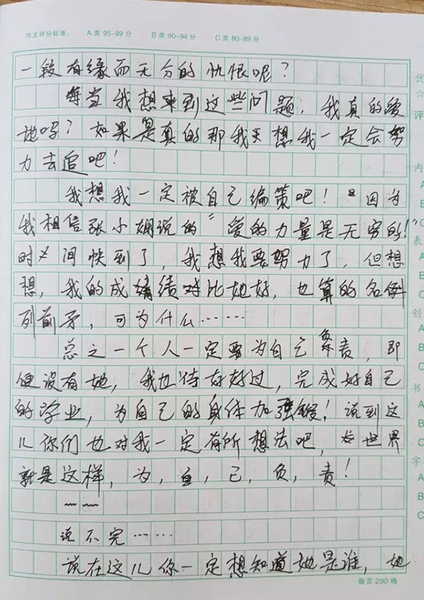 作文评分标准： A类95-99分 B类90-94分 C类80-89分
一段有缘而无分的仇恨呢？
每当我想来到这些问题，我真的爱
她吗？如果是真的那我想我一定会努
力去追吧！
我想我一定被自己鞭策吧！因为
我相信张小娴说的“爱的力量是无穷的！”
时间快到了，我想我要努力了，但想
想，我的成绩对比她好，也算的名
列前矛，可为什么……
总之一个人一定要为自己负责，即
便没有她，我也待好好过，完成好自己
的学业，为自己的身体加强锻！说到这
儿你们也对我一定有所想法吧，世界
就是这样，为，自，己，负，责！
~~
说不完……
说在这儿你一定想知道她是谁，她
每页290格
优
☆
评
内
A
B
C
表
A
B
C
创
A
B
C
字
A
B
C